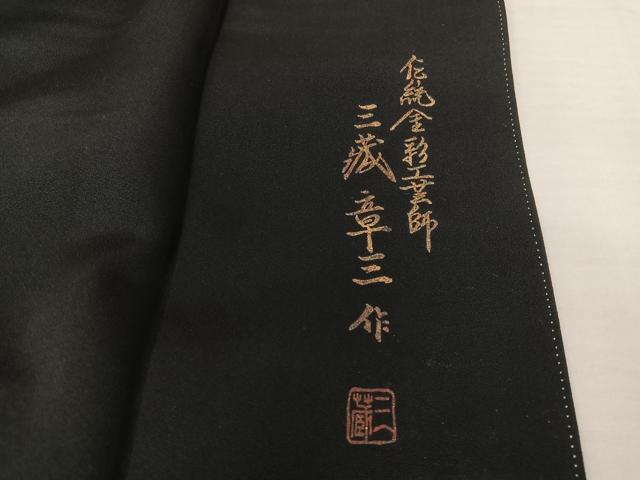 伝統金彩工芸師
三藏章三作
三藏